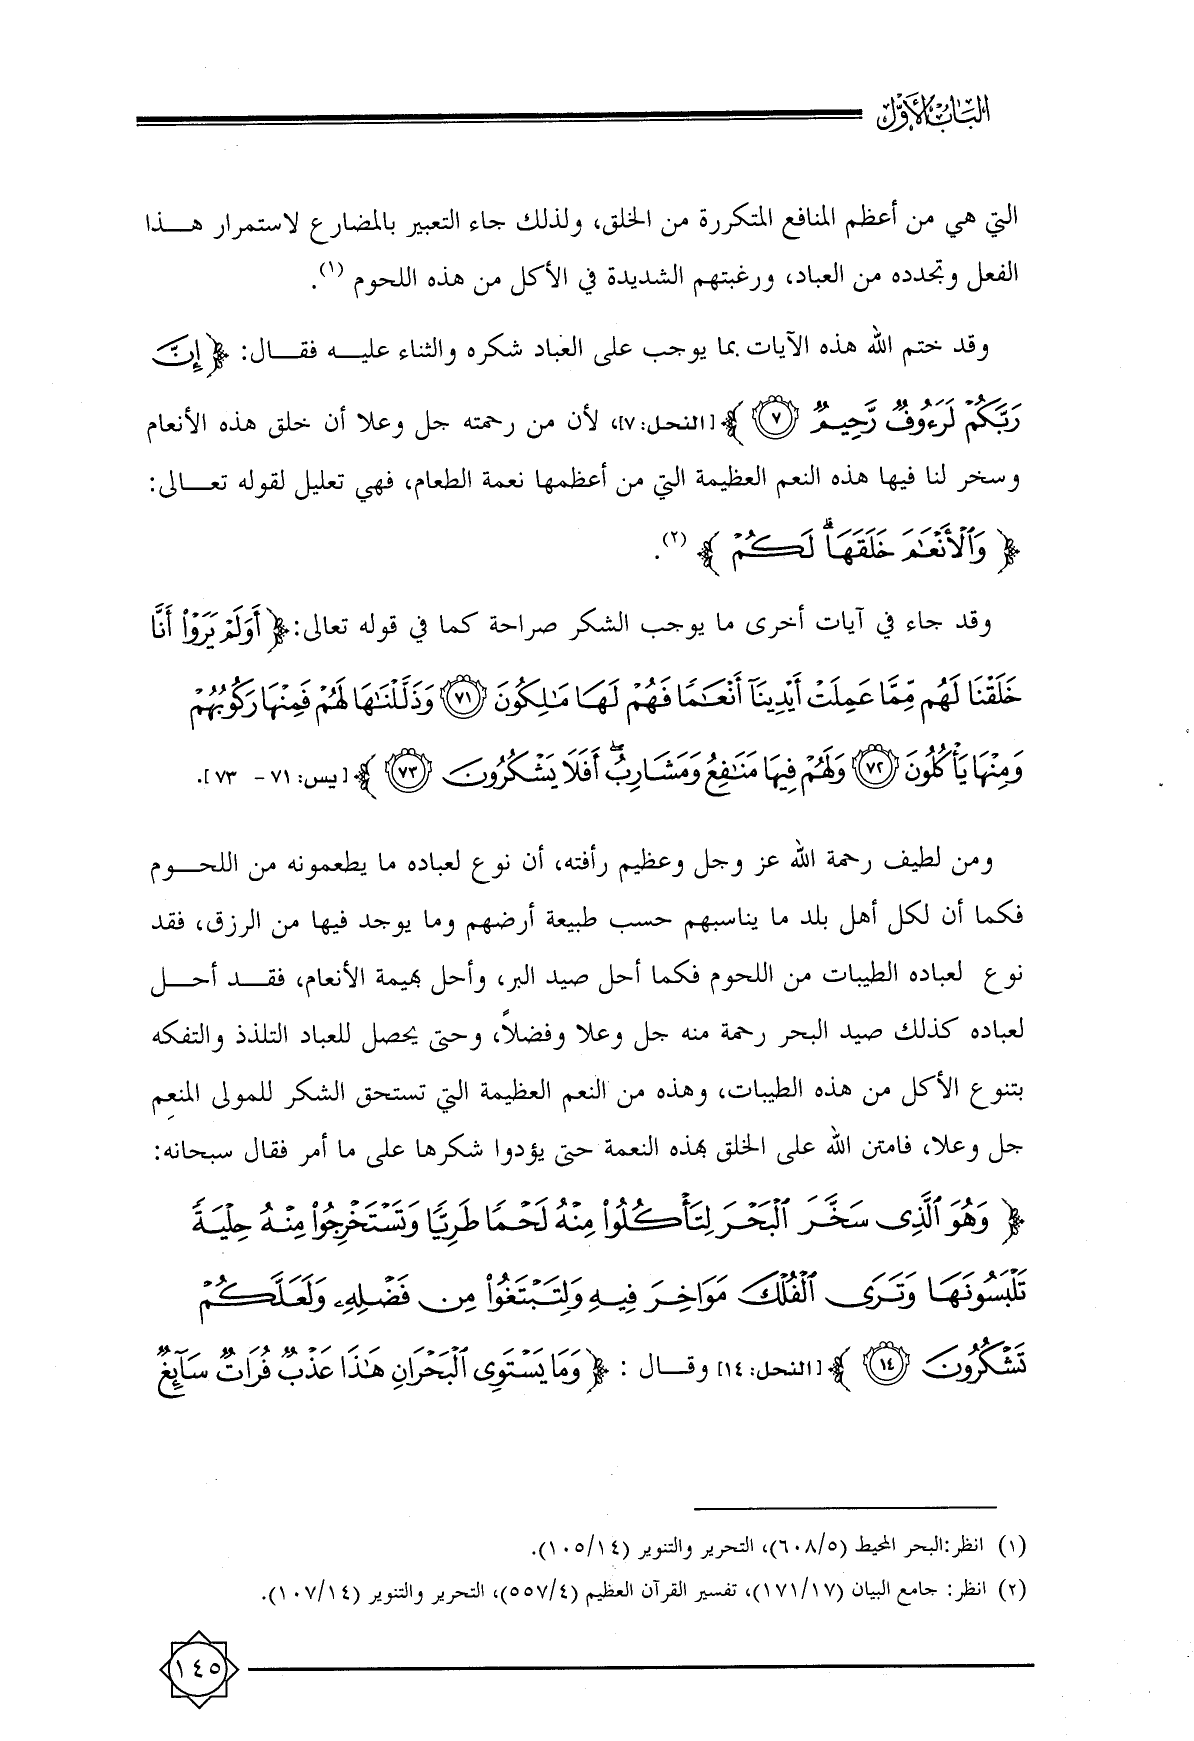 الباب الأول
التي هي من أعظم المنافع المتكررة من الخلق، ولذلك جاء التعبير بالمضارع لاستمرار هـــذا
الفعل وتجدده من العباد، ورغبتهم الشديدة في الأكل من هذه اللحوم (١).
وقد ختم الله هذه الآيات بما يوجب على العباد شكره والثناء عليـــه فقـــال: ﴿ إِنَّ
رَبَّكُمْ لَرَءُوفٌ رَّحِيمٌ ٧ ﴾ [النحل: ٧]، لأن من رحمته جل وعلا أن خلق هذه الأنعام
وسخر لنا فيها هذه النعم العظيمة التي من أعظمها نعمة الطعام، فهي تعليل لقوله تعـــالى:
﴿ وَٱلْأَنْعَٰمَ خَلَقَهَا ۗ لَكُمْ ﴾ (٢).
وقد جاء في آيات أخرى ما يوجب الشكر صراحة كما في قوله تعالى: ﴿ أَوَلَمْ يَرَوْا۟ أَنَّا
خَلَقْنَا لَهُم مِّمَّا عَمِلَتْ أَيْدِينَآ أَنْعَٰمًا فَهُمْ لَهَا مَٰلِكُونَ ٧١ وَذَلَّلْنَٰهَا لَهُمْ فَمِنْهَا رَكُوبُهُمْ
وَمِنْهَا يَأْكُلُونَ ٧٢ وَلَهُمْ فِيهَا مَنَٰفِعُ وَمَشَارِبُ ۖ أَفَلَا يَشْكُرُونَ ٧٣ ﴾ [يس: ٧١ - ٧٣].
ومن لطيف رحمة الله عز وجل وعظيم رأفته، أن نوع لعباده ما يطعمونه من اللحـــوم
فكما أن لكل أهل بلد ما يناسبهم حسب طبيعة أرضهم وما يوجد فيها من الرزق، فقد
نوع لعباده الطيبات من اللحوم فكما أحل صيد البر، وأحل بهيمة الأنعام، فقـــد أحـــل
لعباده كذلك صيد البحر رحمة منه جل وعلا وفضلاً، وحتى يحصل للعباد التلذذ والتفكه
بتنوع الأكل من هذه الطيبات، وهذه من النعم العظيمة التي تستحق الشكر للمولى المنعِم
جل وعلا، فامتن الله على الخلق بهذه النعمة حتى يؤدوا شكرها على ما أمر فقال سبحانه:
﴿ وَهُوَ ٱلَّذِى سَخَّرَ ٱلْبَحْرَ لِتَأْكُلُوا۟ مِنْهُ لَحْمًا طَرِيًّا وَتَسْتَخْرِجُوا۟ مِنْهُ حِلْيَةً
تَلْبَسُونَهَا وَتَرَى ٱلْفُلْكَ مَوَاخِرَ فِيهِ وَلِتَبْتَغُوا۟ مِن فَضْلِهِۦ وَلَعَلَّكُمْ
تَشْكُرُونَ ١٤ ﴾ [النحل: ١٤] وقـــال : ﴿ وَمَا يَسْتَوِى ٱلْبَحْرَانِ هَٰذَا عَذْبٌ فُرَاتٌ سَآئِغٌ
(١) انظر:البحر المحيط (٦٠٨/٥)، التحرير والتنوير (١٠٥/١٤).
(٢) انظر: جامع البيان (١٧١/١٧)، تفسير القرآن العظيم (٥٥٧/٤)، التحرير والتنوير (١٠٧/١٤).
١٤٥